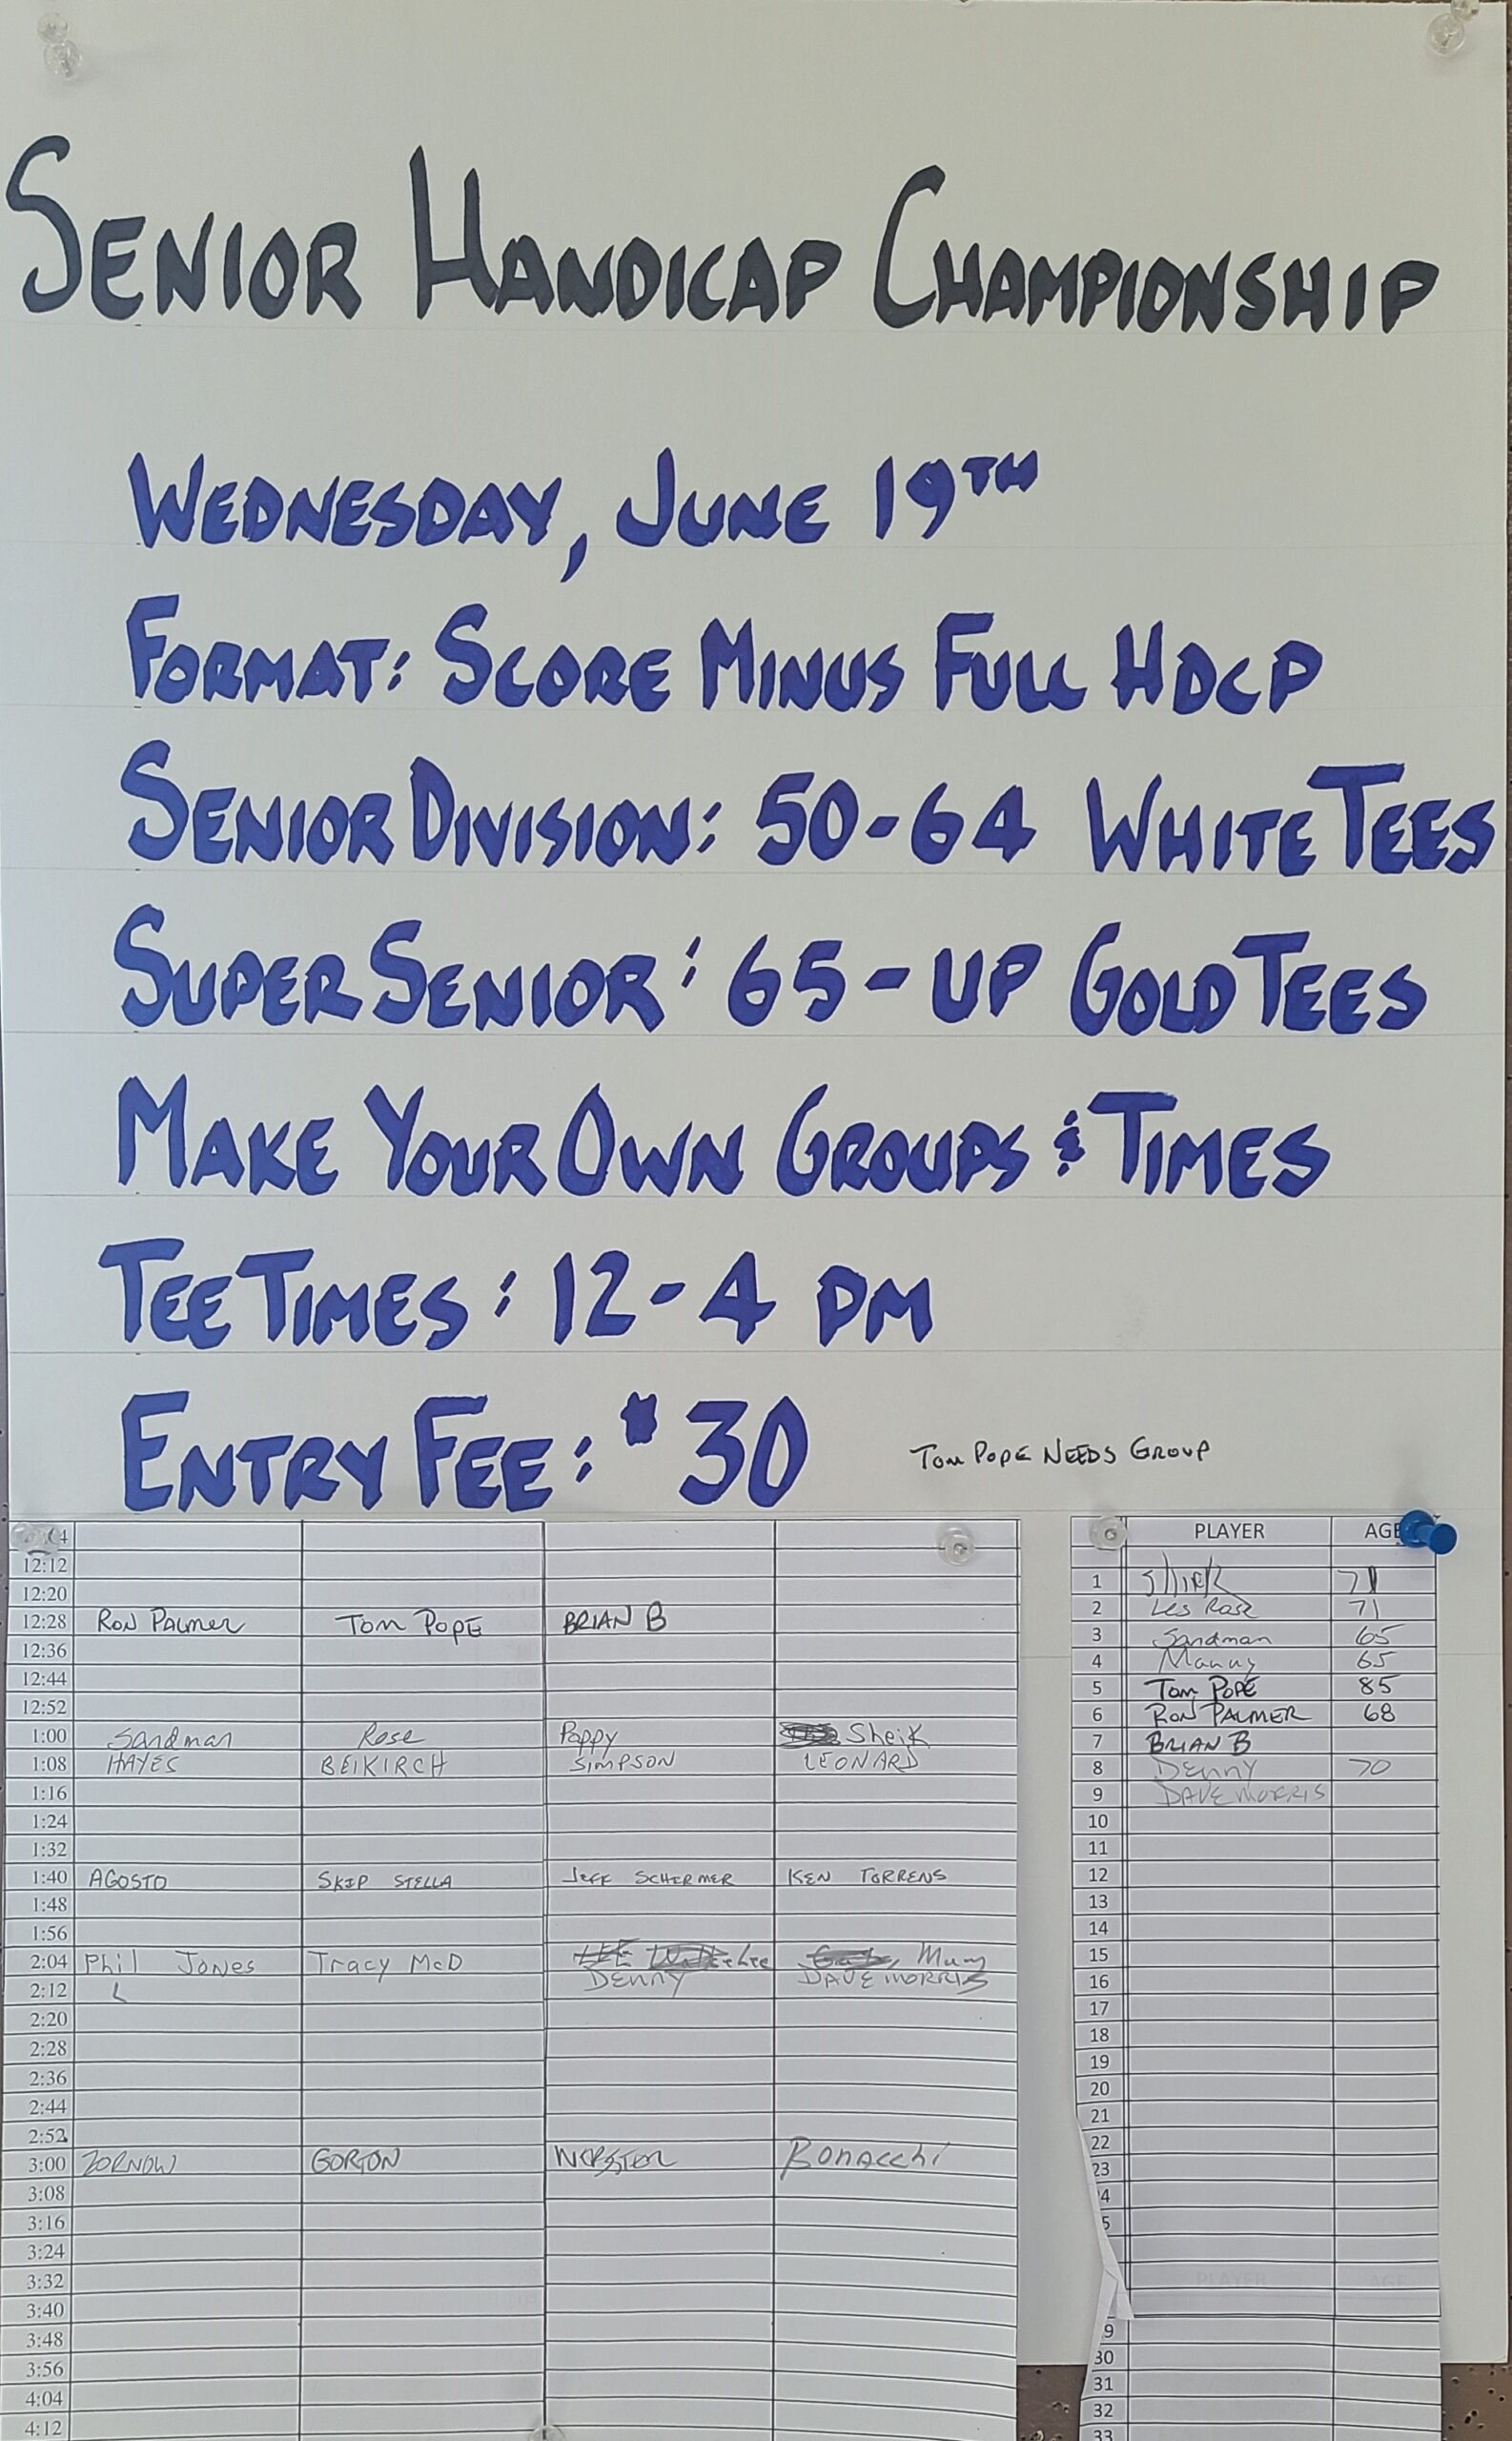 SENIOR HANDICAP CHAMPIONSHIP
WEDNESDAY, JUNE 19TH
FORMAT: SCORE MINUS FULL HDCP
SENIOR DIVISION: 50-64 WHITE TEES
SUPER SENIOR: 65-UP GOLD TEES
MAKE YOUR OWN GROUPS & TIMES
TEE TIMES: 12-4 PM
ENTRY FEE: $30
TOM POPE NEEDS GROUP
4
12:12
12:20
12:28 RON PALMER TOM POPE BRIAN B
12:36
12:44
12:52
1:00 Sandman Rose Poppy Sheik
1:08 HAYES BEIKIRCH SIMPSON LEONARD
1:16
1:24
1:32
1:40 AGOSTO SKIP STELLA JEFF SCHIRMER KEN TORRENS
1:48
1:56
2:04 Phil Jones Tracy McD
2:12 DENNY DAVE MORRIS
2:20
2:28
2:36
2:44
2:52
3:00 ZORNOW GORTON WEBSTER Bonacchi
3:08
3:16
3:24
3:32
3:40
3:48
3:56
4:04
4:12
PLAYER AGE
1 71
2 Les Rose 71
3 Sandman 65
4 Manny 65
5 TOM POPE 85
6 RON PALMER 68
7 BRIAN B
8 DENNY 70
9 DAVE MORRIS
10
11
12
13
14
15
16
17
18
19
20
21
22
23
4
5
PLAYER AGE
9
30
31
32
33